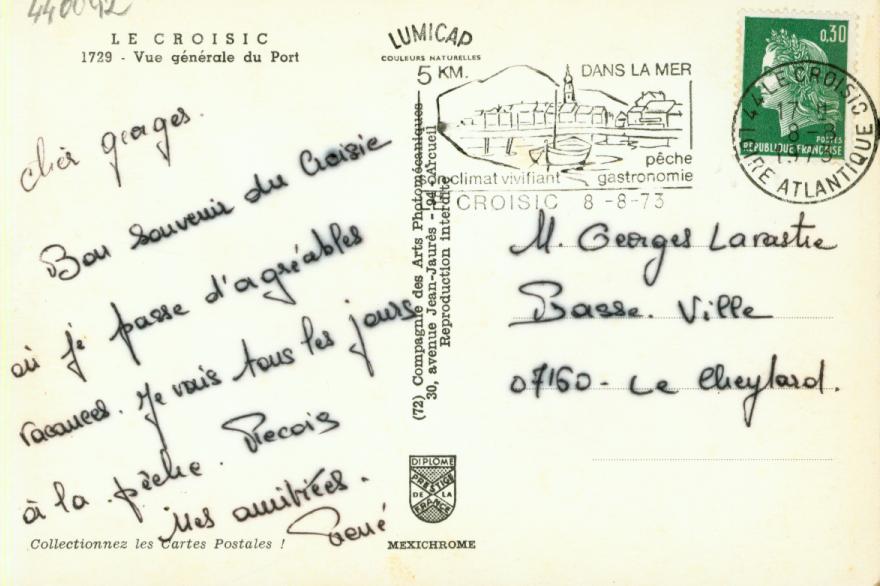 440042
LE CROISIC
1729 - Vue générale du Port
LUMICAP
COULEURS NATURELLES
cher georges.
Bon souvenir du Croisic
où je passe d'agréables
vacances. Je vais tous les jours
à la pêche. Reçois
mes amitiées.
René
Collectionnez les Cartes Postales !
(72) Compagnie des Arts Photomécaniques
30, avenue Jean-Jaurès - 94 - Arcueil
Reproduction interdite
DIPLOME
PRESTIGE
DE LA
FRANCE
MEXICHROME
5 KM. DANS LA MER
pêche
son climat vivifiant gastronomie
LE CROISIC 8-8-73
0,30
POSTES
REPUBLIQUE FRANÇAISE
44 LE CROISIC
8-8
1973
LOIRE ATLANTIQUE
M. Georges Lavastre
Basse. Ville
07160 - Le Cheylard.